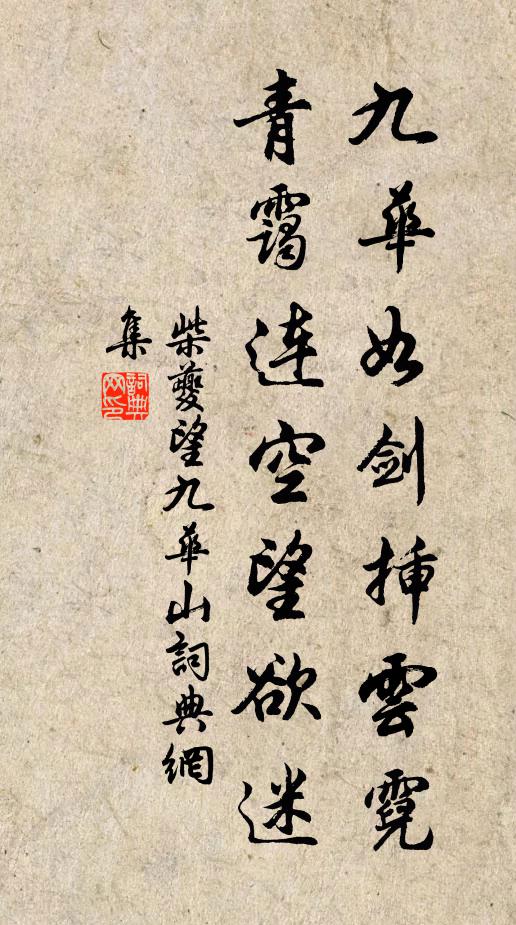 九華如劍插雲霓
青靄連空望欲迷
柴夔望九華山詞典網
集
詞典網印